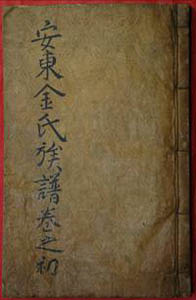 安東金氏族譜卷之初